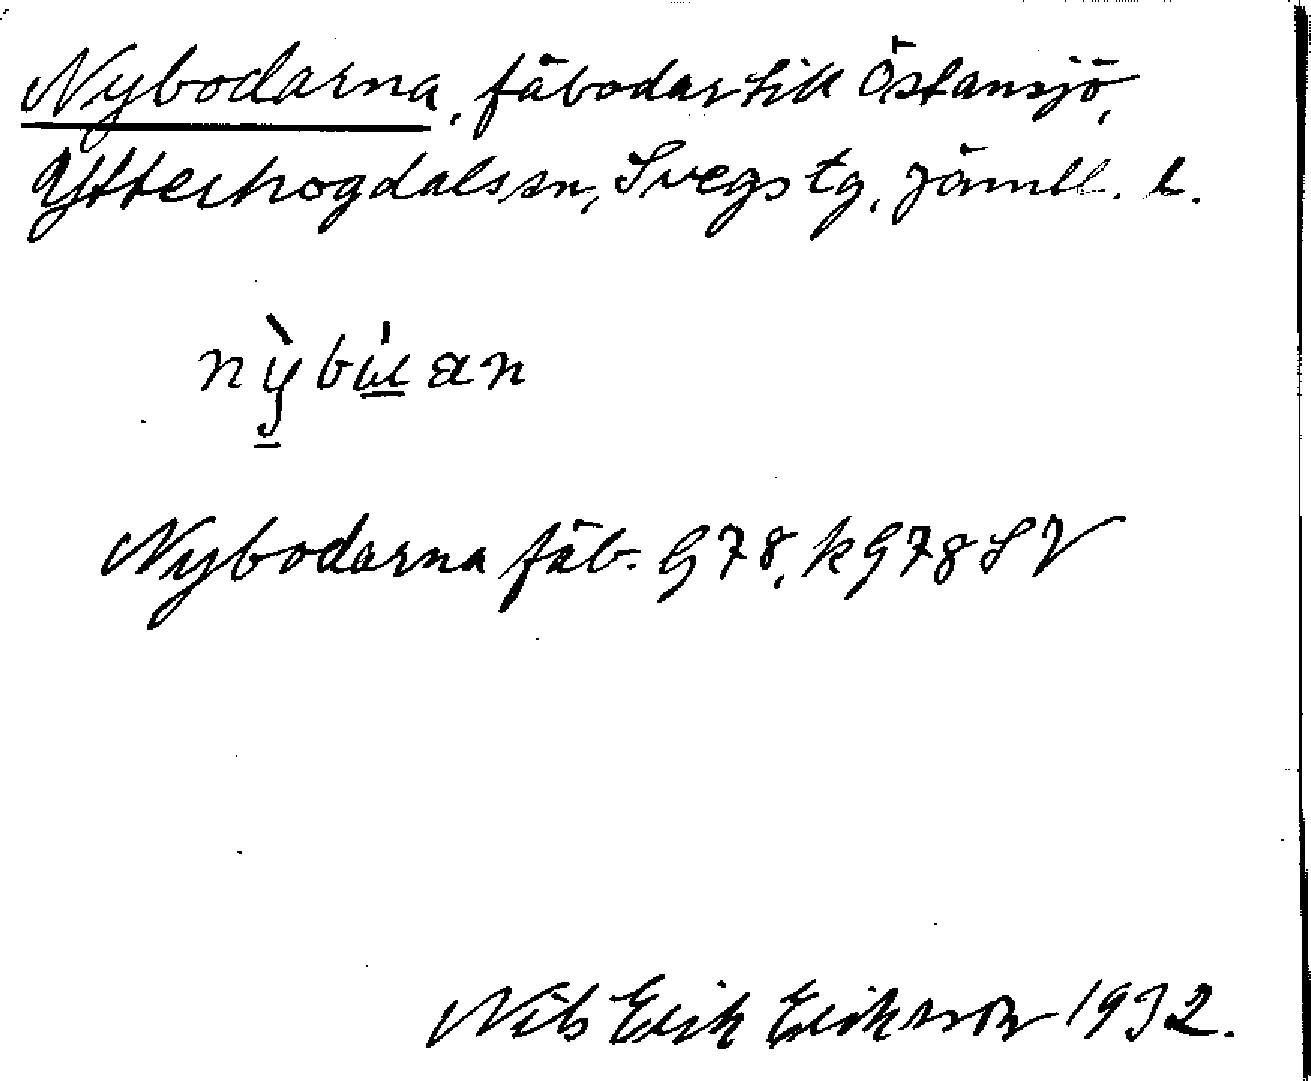 Nybodarna, fäbodar till Östansjö,
Ytterhogdals sn, Svegs tg, Jämtl. l.
nỳbu̍an
Nybodarna fäb. G78, k G78 SV
Nils Erik Eriksson 1932.